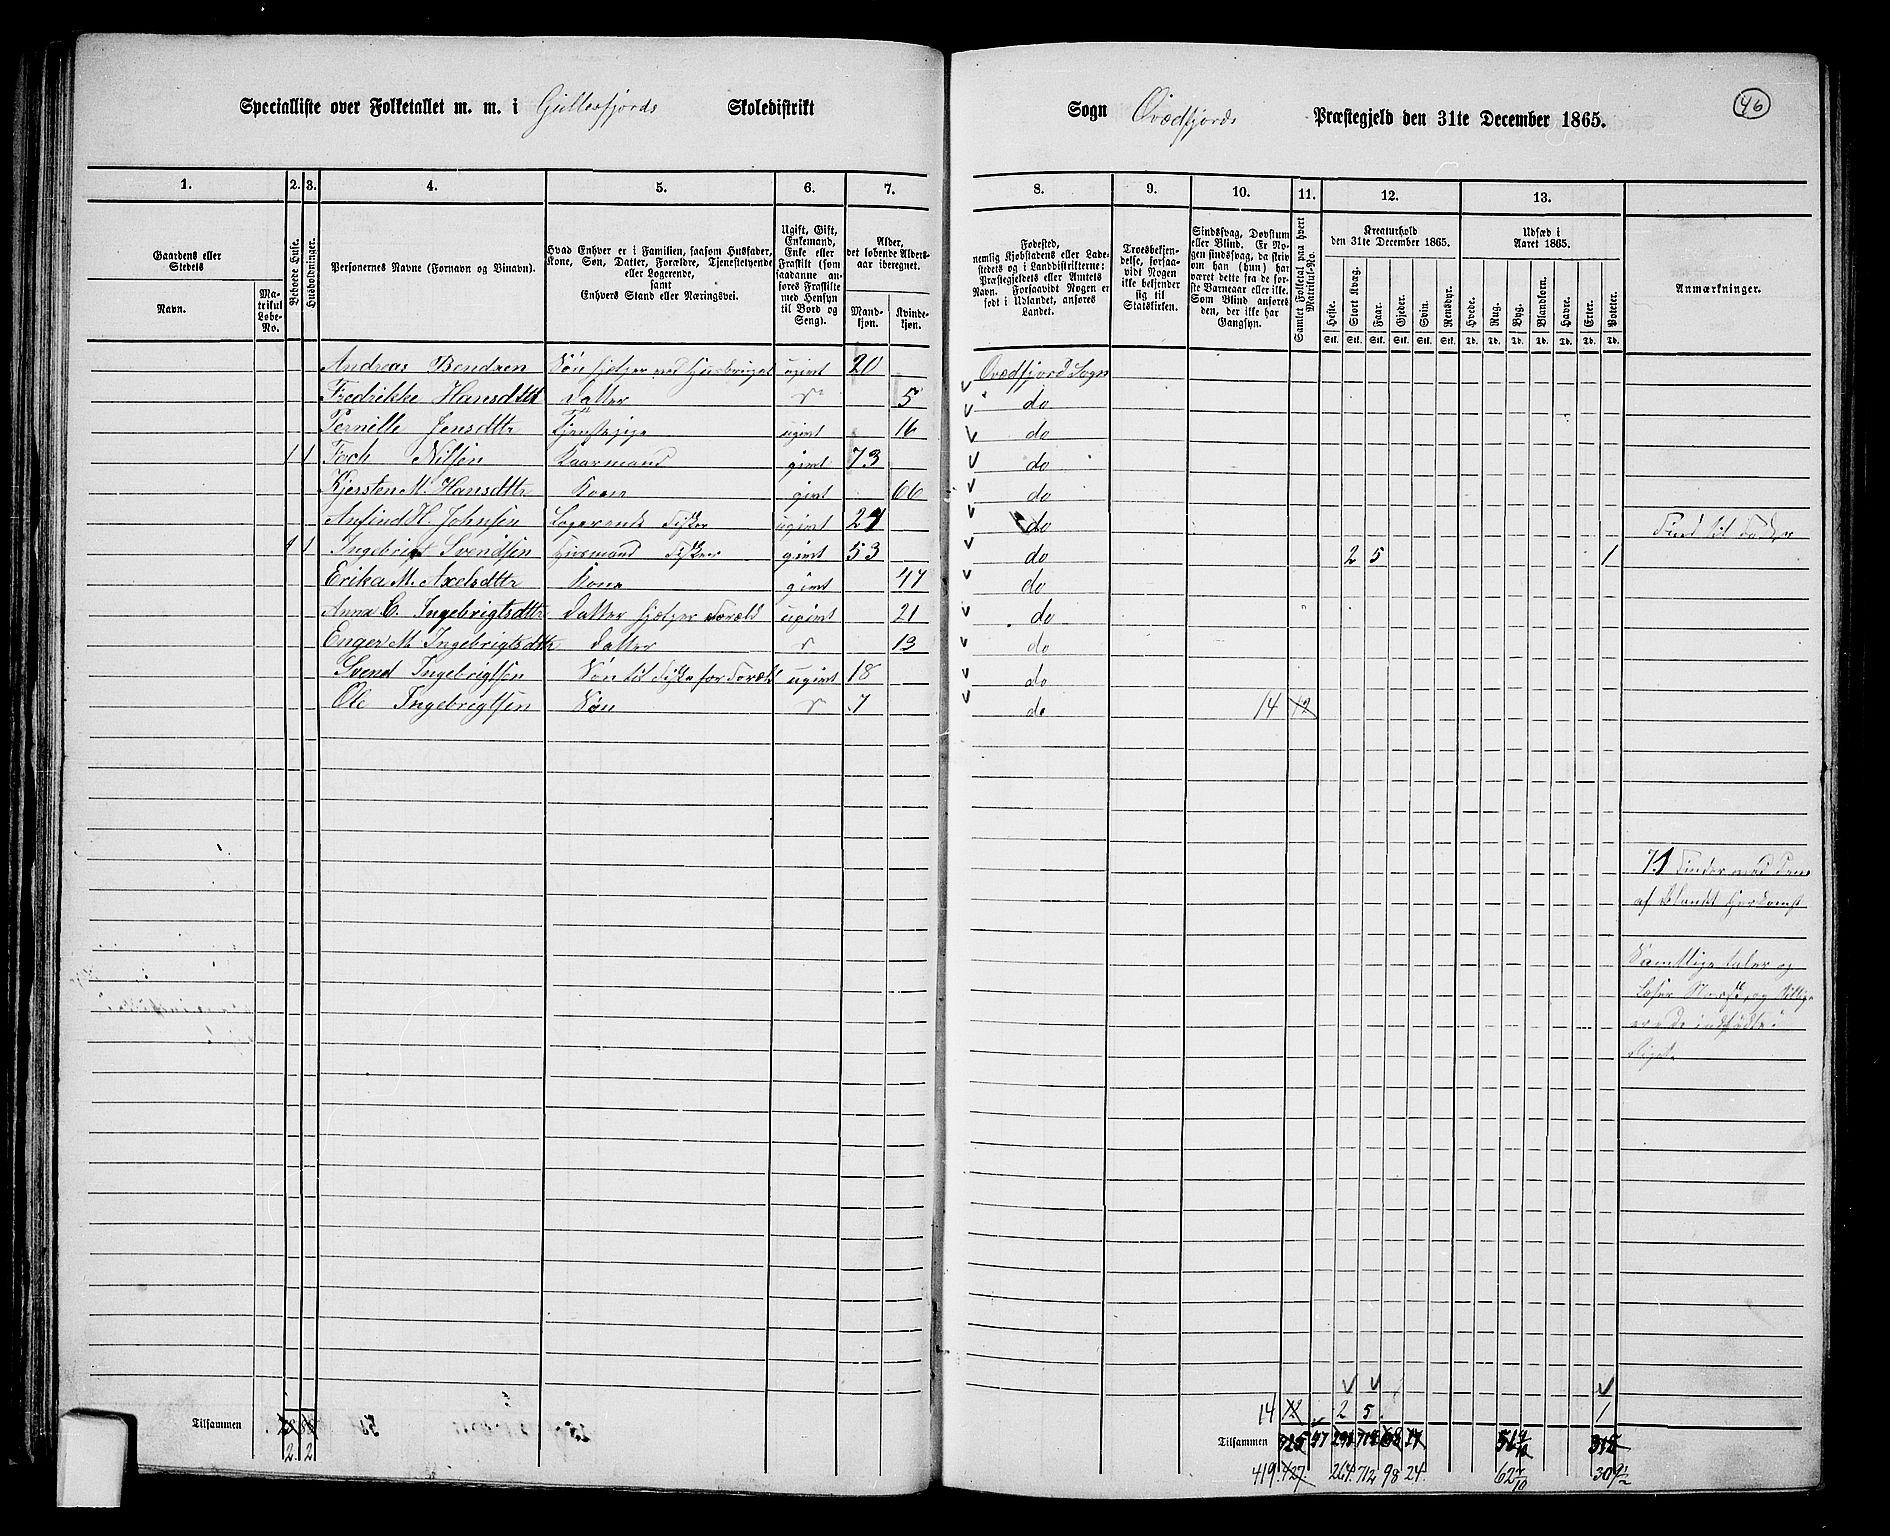 Specialliste over Folketallet m. m. i Gullesfjords Skoledistrikt
Sogn Qvædfjords Præstegjeld den 31te December 1865.
46
1. 2. 3. 4. 5. 6. 7.
8. 9. 10. 11. 12. 13.
Gaardens eller Stedets
Navn.
Matrikul Løbe-No.
Beboede Huse.
Husholdninger.
Personernes Navne (Fornavn og Binavn).
Hvad Enhver er i Familien, saasom Husfader, Kone, Søn, Datter, Forældre, Tjenestetyende eller Logerende, samt Enhvers Stand eller Næringsvei.
Ugift, Gift, Enkemand, Enke eller Fraskilt (som saadanne anføres Fraskilte med Hensyn til Bord og Seng).
Alder, det løbende Alders-aar iberegnet.
Mandkjøn. Kvindekjøn.
Fødested, nemlig Kjøbstadens eller Ladestedets og i Landdistrikterne: Præstegjeldets eller Amtets Navn. Forsaavidt Nogen er født i Udlandet, anføres Landet.
Troesbekjendelse, forsaavidt Nogen ikke bekjender sig til Statskirken.
Sindssvag, Døvstum eller Blind. Er Nogen sindssvag, da skrives om han (hun) har været dette fra de første Barneaar eller ikke. Som Blind anføres den, der ikke har Gangsyn.
Samlet Folketal paa hvert Matrikul-No.
Kreaturhold den 31te December 1865.
Heste. Stort Kvæg. Faar. Gjeder. Svin. Rensdyr.
Udsæd i Aaret 1865.
Hvede. Rug. Byg. Blandkorn. Havre. Erter. Poteter.
Anmærkninger.
Andreas Bendxen Søn hjelper med Husbruget ugivt 20 Qvædfjord Sogn
Fredrikke Hansdttr Datter 5 do
Pernille Jensdttr Tjenestpige ugivt 16 do
1 1 Nilsen Kaarmand givt 73 do
Kjersten M. Hansdttr Kone givt 66 do
Anfind H. Johnsen Logerende Fisker ugivt do
1 1 Ingebrigt Svendsen Husmand Fisker givt 53 do 2 5 1
Erika M. Axelsdttr Kone givt 47 do
Anna C. Ingebrigtsdttr Datter hjelper Foræld ugivt 21 do
Enger M. Ingebrigtsdttr Datter 13 do
Svend Ingebrigtsen Søn til Fiske for Foræld ugivt 18 do
Ole Ingebrigtsen Søn 7 do 14 12
af Herkomst
Samtlige taler og
ere de indfødte i
Riget
14 12 2 5 1
Tilsammen
2 2
Tilsammen
419 427 264 712 98 24 62 7/10 309 1/2